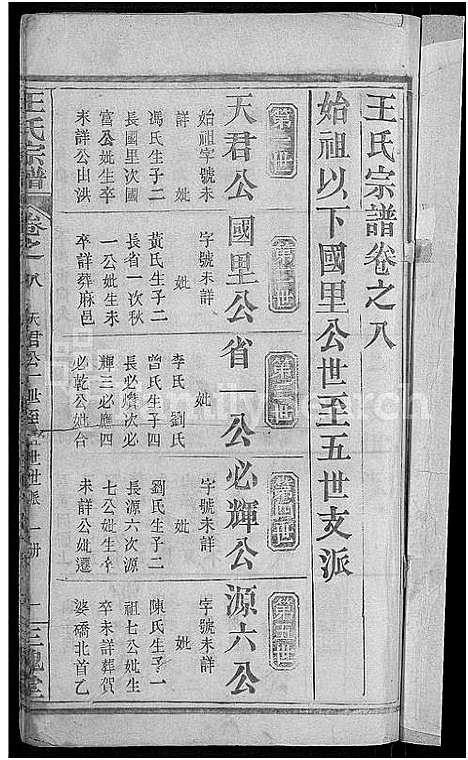 王氏宗譜卷之八
始祖以下國里公世至五世支派
第一世
天君公
始祖字號未
詳 妣
馮氏生子二
長國里次國
官公妣生卒
未詳公由洪
第二世
國里公
字號未詳
妣
黃氏生子二
長省一次秋
一公妣生未
卒詳葬麻邑
第三世
省一公
妣
李氏 劉氏
曾氏生子四
長必㸌次必
輝三必應四
必乾公妣合
第四世
必輝公
字號未詳
妣
劉氏生子二
長源六次源
七公妣生卒
未詳公妣遷
第五世
源六公
字號未詳
妣
陳氏生子一
祖七公妣生
卒未詳葬賀
婆橋北首乙
王氏宗譜
卷之八
天君公一世至五世世派
一冊
一
三槐堂